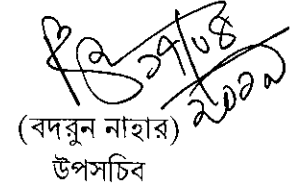 ১৭/০৪
২০২২
(বদরুন নাহার)
উপসচিব